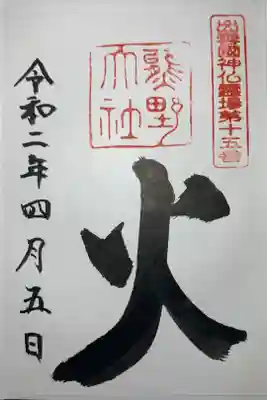 出雲國神仏霊場第十五番
熊野大社
火
令和二年四月五日